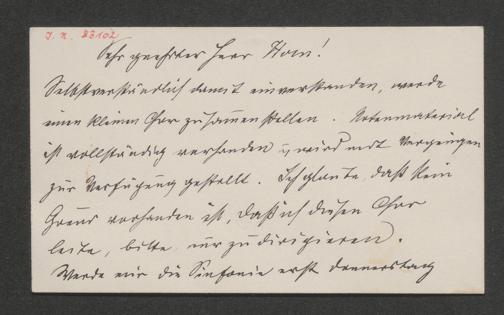 I. N. 83102
Sehr geehrter Herr Kom!
Selbstverständlich damit einverstanden, werde
einen kleinen Chor zusammenstellen. Notenmaterial
ist vollständig vorhanden u wird mit Vergnügen
zur Verfügung gestellt. Ich glaube, daß kein
Grund vorhanden ist, daß ich diesen Chor
leite, bitte nur zu dirigieren.
Werde mir die Sinfonie erst Donnerstag